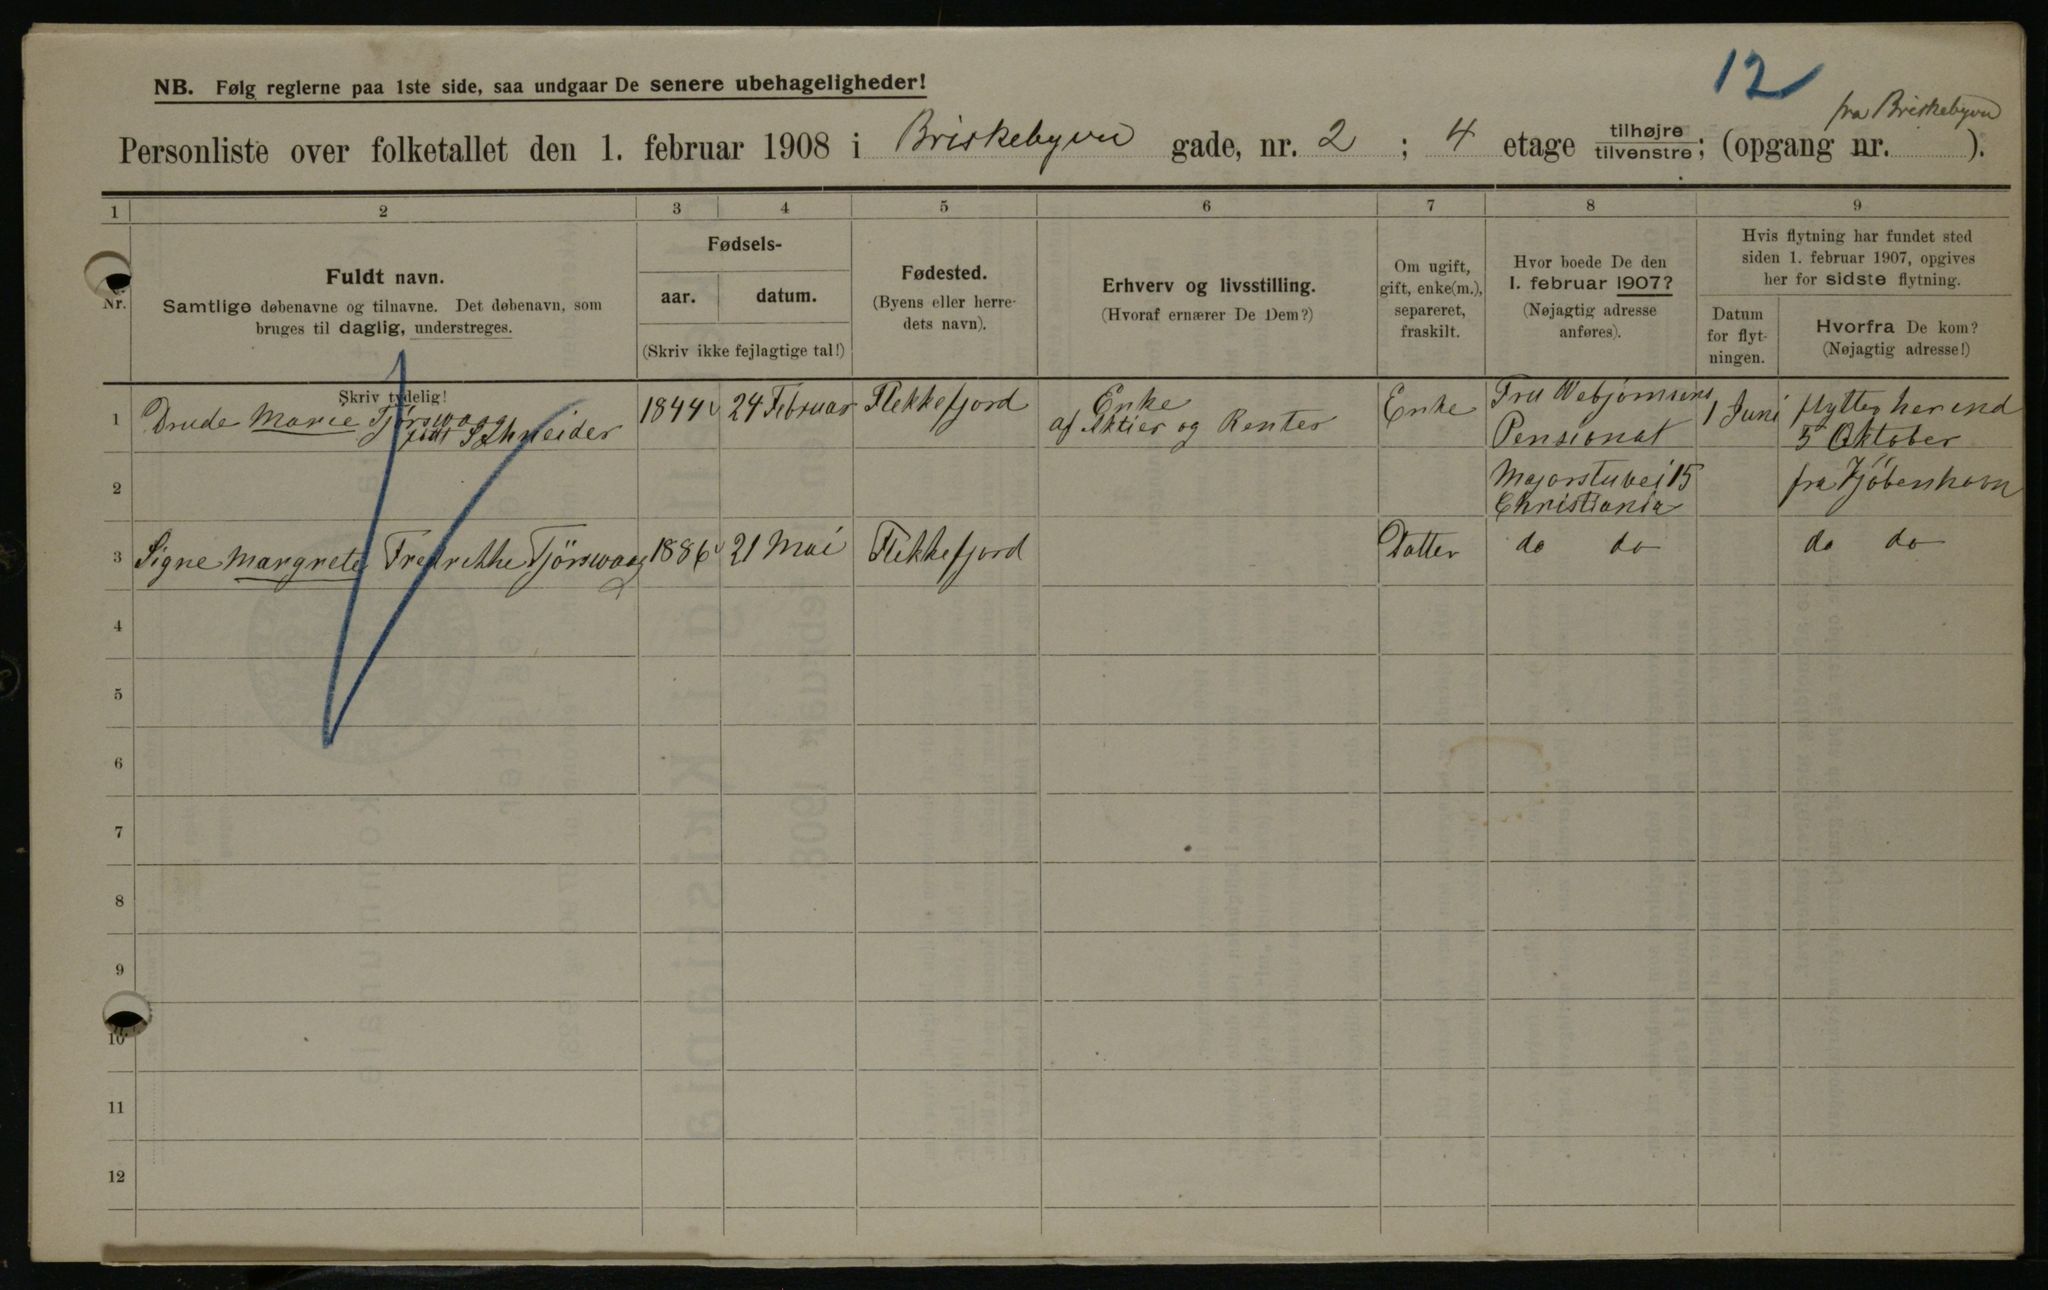 12
NB. Følg reglerne paa 1ste side, saa undgaar De senere ubehageligheder!
fra Briskebyvn
Personliste over folketallet den 1. februar 1908 i Briskebyvn gade, nr. 2 ; 4 etage tilhøjre tilvenstre; (opgang nr. ).
1 2 3 4 5 6 7 8 9
Nr.
Fuldt navn.
Samtlige døbenavne og tilnavne. Det døbenavn, som
bruges til daglig, understreges.
Skriv tydelig!
Fødsels-
aar. datum.
(Skriv ikke fejlagtige tal!)
Fødested.
(Byens eller herre-
dets navn).
Erhverv og livsstilling.
(Hvoraf ernærer De Dem?)
Om ugift,
gift, enke(m.),
separeret,
fraskilt.
Hvor boede De den
1. februar 1907?
(Nøjagtig adresse
anføres).
Hvis flytning har fundet sted
siden 1. februar 1907, opgives
her for sidste flytning.
Datum
for flyt-
ningen.
Hvorfra De kom?
(Nøjagtig adresse!)
1 Drude Marie Tjørswaag
født Schneider
1844 24 Februar Flekkefjord
Enke
af Aktier og Renter
Enke
Fru Webjørnsens
Pensionat
Majorstuvei 15
Christiania
1 Juni
flytteg her ind
5 Oktober
fra Kjöbenhavn
2
3 Signe Margrete Fredrikke Tjörswaag 1886 21 Mai Flekkefjord Datter do do do do
4
5
6
7
8
9
10
11
12